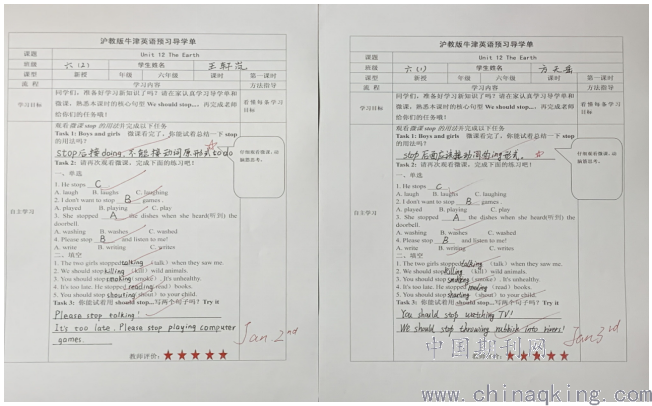 沪教版牛津英语预习导学单
课题 Unit 12 The Earth
班级 六(2) 学生姓名
课型 新授 年级 六年级 课时 第一课时
流程 学习内容 方法指导
学习目标
同学们,准备好学习新知识了吗?请在家认真学习导学单和
微课,熟悉本课时的核心句型 We should stop…,再完成老师
给你们的任务哦!
看懂每条学习
目标
自主学习
观看微课 stop 的用法并完成以下任务
Task 1: Boys and girls 微课看完了,你能试着总结一下 stop
的用法吗?
stop后接doing,不能接动词原形或to do
Task 2: 请再次观看微课,完成下面的练习吧!
仔细观看微课,动
脑筋思考。
一、单选
1. He stops C
A. laugh B. laughs C. laughing
2. I don't want to stop B games .
A. played B. playing C. play
3. She stopped A the dishes when she heard(听到) the
doorbell.
A. washing B. washes C. washed
4. Please stop B and listen to me!
A. write B. writing C. writes
二、填空
1. The two girls stopped talking (talk) when they saw me.
2. We should stop killing (kill) wild animals.
3. You should stop smoking (smoke) . It's unhealthy.
4. It's too late. He stopped reading (read) books.
5. You should stop shouting (shout) to your child.
Task 3: 你能试着用 should stop…写两个句子吗? Try it
Please stop talking!
It's too late. Please stop playing computer
games.
Jan 2nd
教师评价: ★★★★★
沪教版牛津英语预习导学单
课题 Unit 12 The Earth
班级 六(1) 学生姓名
课型 新授 年级 六年级 课时 第一课时
流程 学习内容 方法指导
学习目标
同学们,准备好学习新知识了吗?请在家认真学习导学单和
微课,熟悉本课时的核心句型 We should stop…,再完成老师
给你们的任务哦!
看懂每条学习
目标
自主学习
观看微课 stop 的用法并完成以下任务
Task 1: Boys and girls 微课看完了,你能试着总结一下 stop
的用法吗?
stop后面应该接动词的ing形式。
Task 2: 请再次观看微课,完成下面的练习吧!
仔细观看微课,动
脑筋思考。
一、单选
1. He stops C
A. laugh B. laughs C. laughing
2. I don't want to stop B games .
A. played B. playing C. play
3. She stopped A the dishes when she heard(听到) the
doorbell.
A. washing B. washes C. washed
4. Please stop B and listen to me!
A. write B. writing C. writes
二、填空
1. The two girls stopped talking (talk) when they saw me.
2. We should stop killing (kill) wild animals.
3. You should stop smoking (smoke) . It's unhealthy.
4. It's too late. He stopped reading (read) books.
5. You should stop (shout) to your child.
Task 3: 你能试着用 should stop…写两个句子吗? Try it
You should stop watching TV!
We should stop throwing rubbish into rivers!
Jan 3rd
教师评价: ★★★★★
中国期刊网
www.chinaqking.com